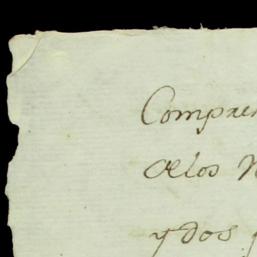 Compren
de los N
y dos